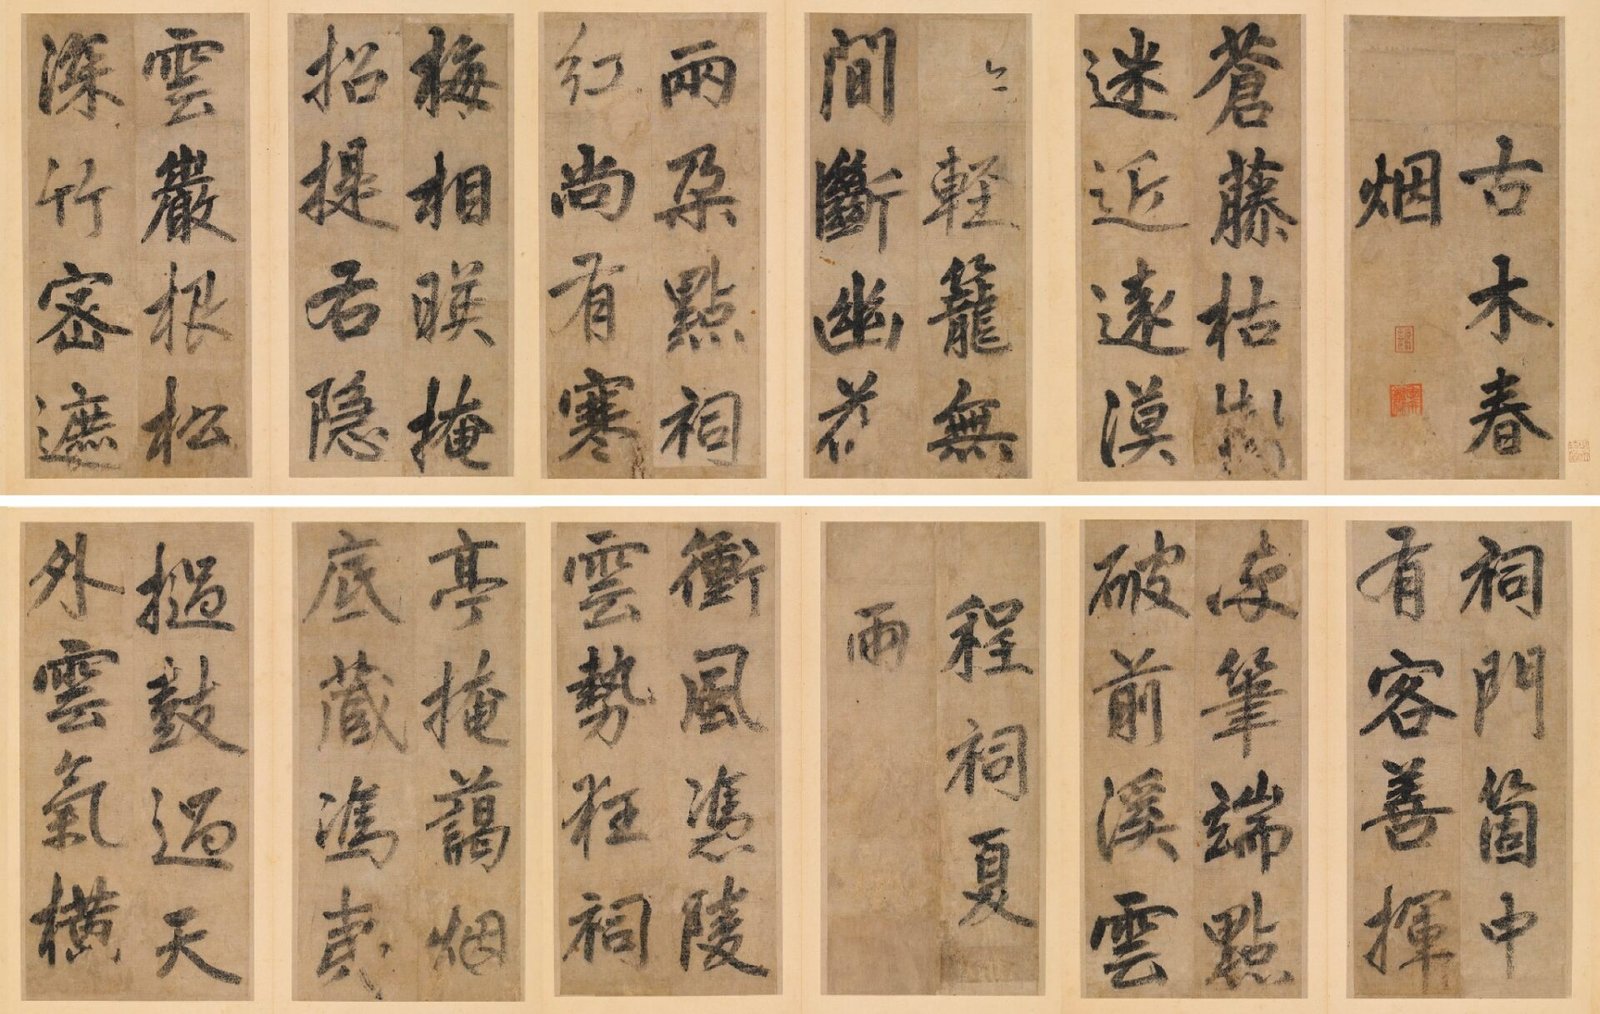 古木春
烟
蒼藤枯樹
迷近遠漠
〻軽籠無
間斷幽花
兩朶點祠
紅尚有寒
梅相暎掩
招提右隐
雲巖根松
深竹密遮
祠門箇中
有客善揮
筆端點
破前溪雲
程祠夏
雨
衝風憑陵
雲勢狂祠
亭掩藹烟
底蔵馮夷
撾鼓過天
外雲氣橫